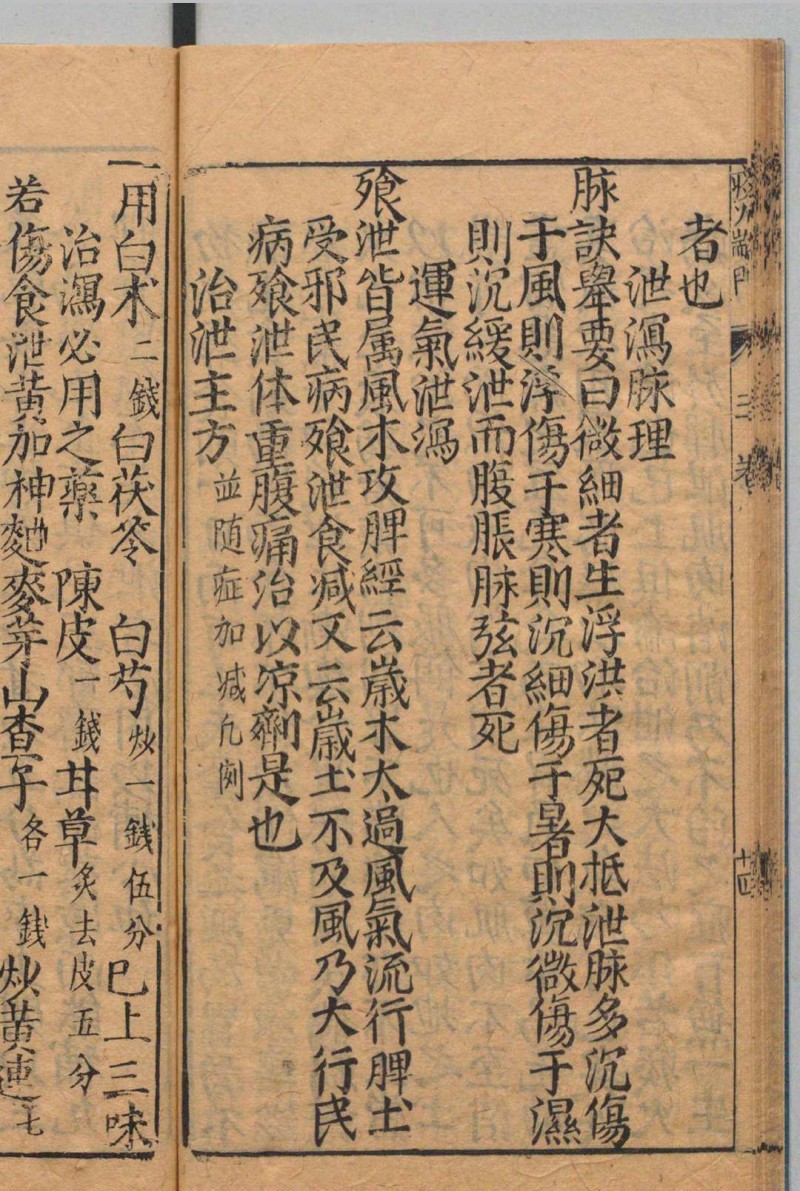 者也
泄瀉脉理
脉訣舉要曰微細者生浮洪者死大柢泄脉多沉傷
于風則浮傷于寒則沉細傷于暑則沉微傷于濕
則沉緩泄而腹脹脉弦者死
運氣泄瀉
飱泄皆属風木攻脾經云嵗木太過風氣流行脾土
受邪民病飱泄食减又云嵗土不及風乃大行民
病飱泄体重腹痛治以凉劑是也
治泄主方並随症加减凡例
一用白术二錢白茯苓 白芍炒一錢伍分已上三味
治瀉必用之藥 陳皮一錢甘草炙去皮五分
若傷食泄黄加神麯麥芽山查子各一錢炒黄連七